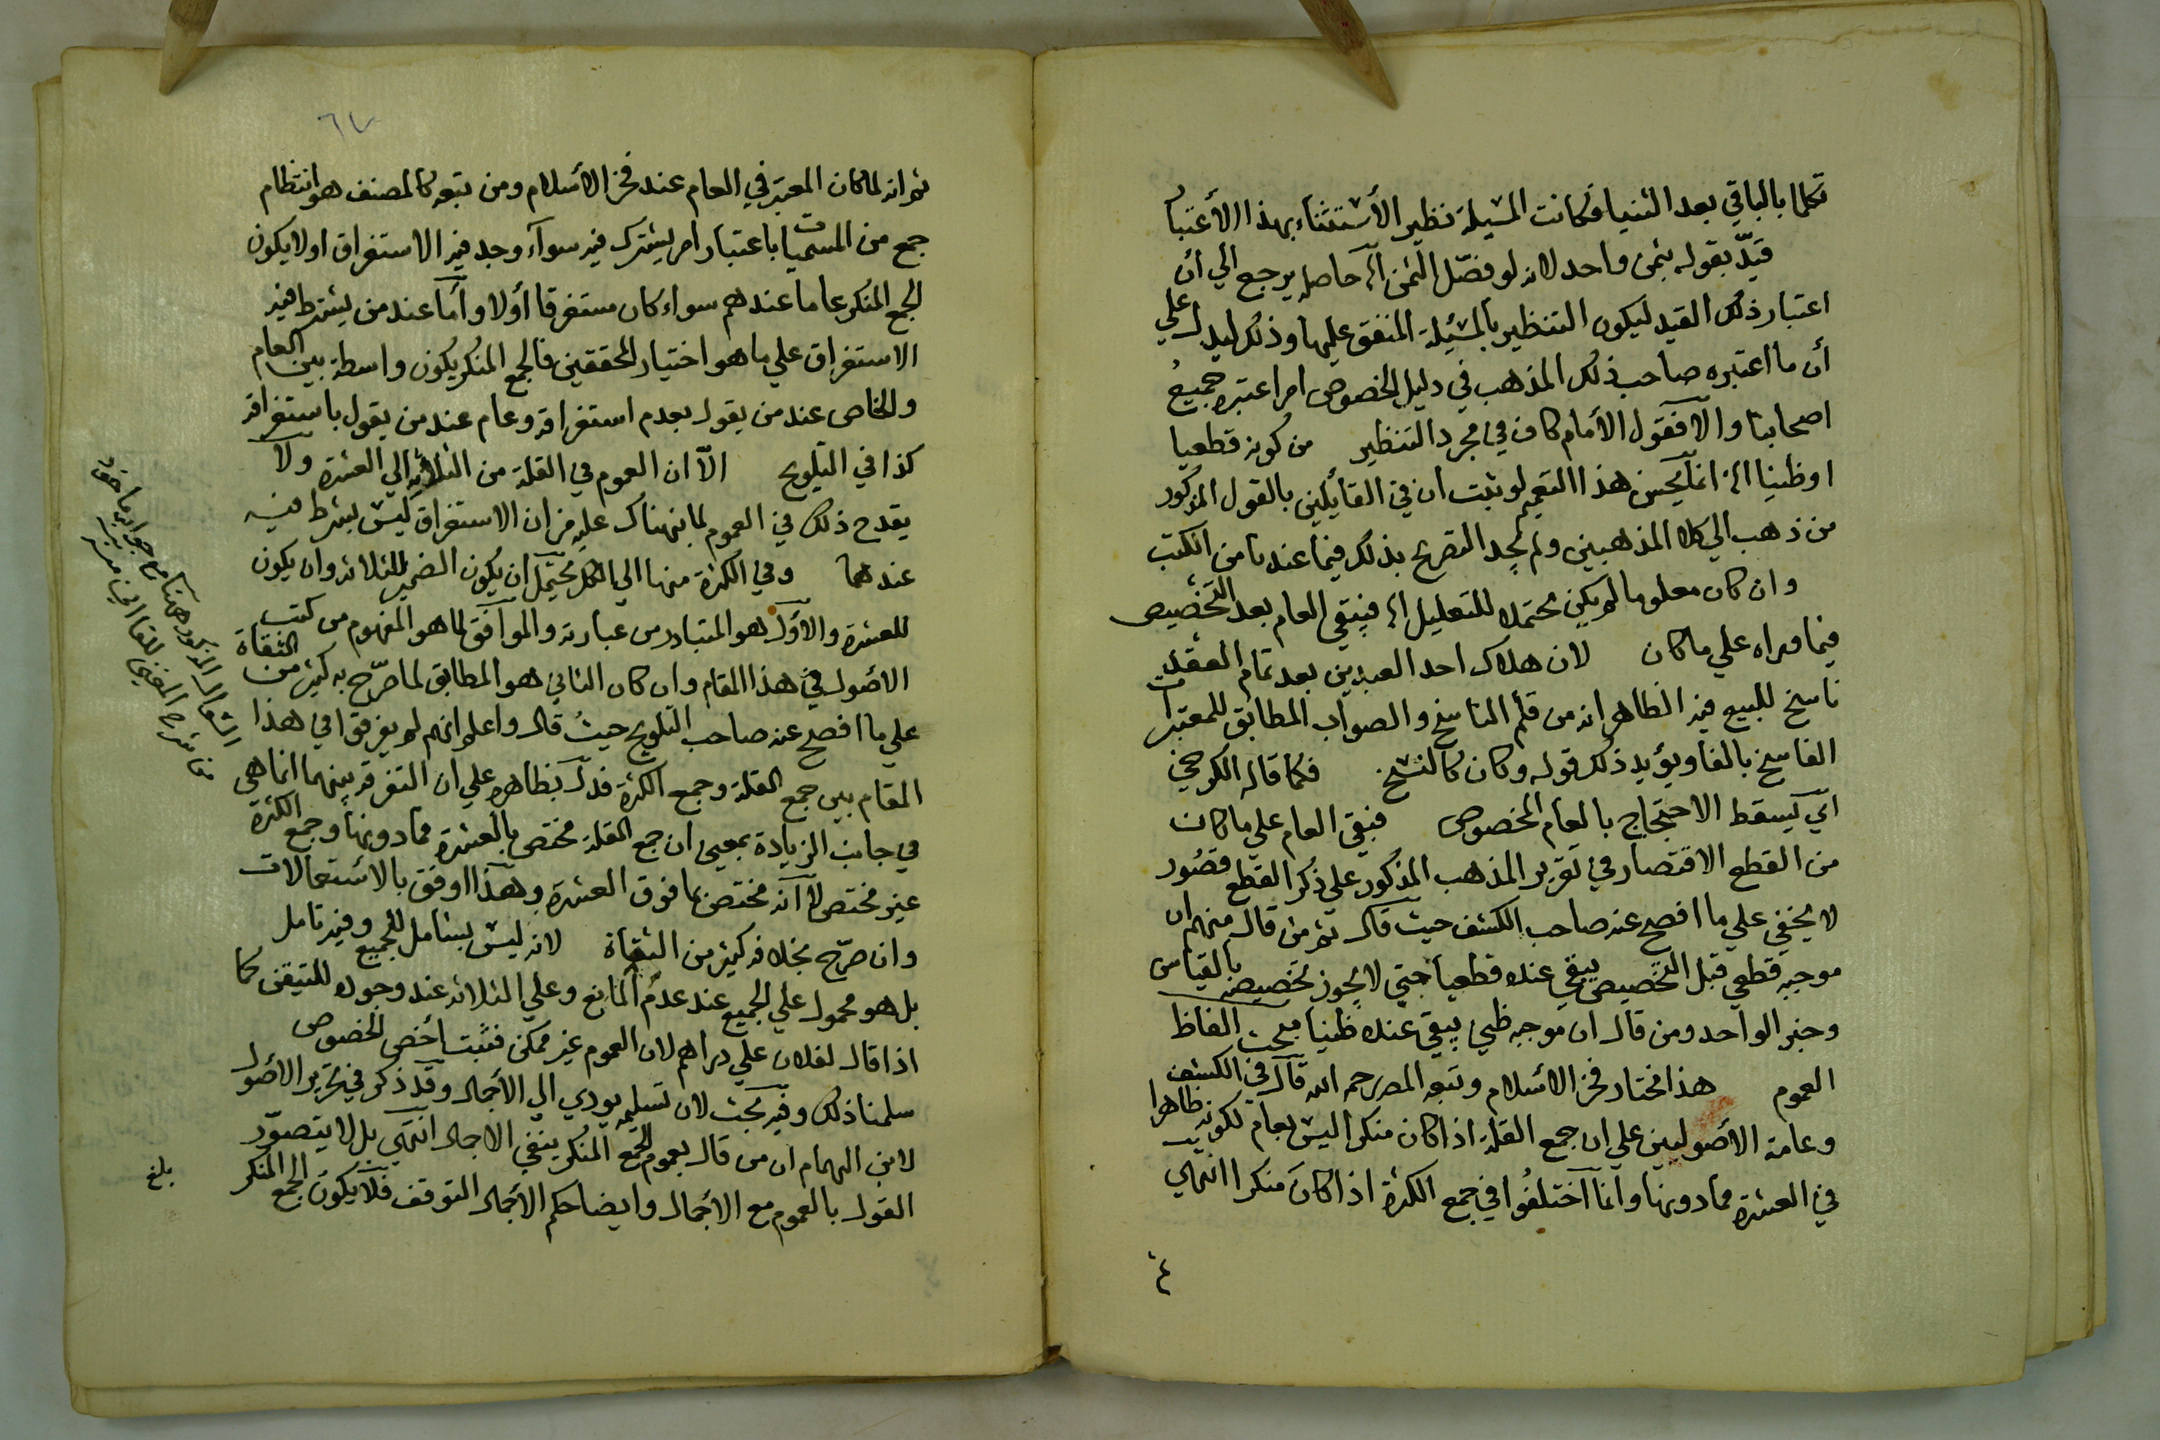 تكلما بالباقي بعد الثنيا فكانت المسئلة نظير الأستثناء بهذا الأعتبار
قيّد بقوله بثمن واحد لانه لو فصّل الثمن الخ حاصله يرجع الي أن
اعتبار ذلك القيد ليكون التنظير بالمسئلة المتفق عليها وذلك ليدل علي
أن ما اعتبره صاحب ذلك المذهب في دليل الخصوص امر اعتبره جميع
اصحابنا والا فقول الأمام كاف في مجرد التنظير من كونه قطعيا
او ظنيا الخ انما يحسن هذا التعميم لو ثبت ان في القائلين بالقول المذكور
من ذهب الي كلا المذهبين ولم نجد التصريح بذلك فيما عندنا من الكتب
وان كان معلوما لم يكن محتملا للتعليل الخ فيبقي العام بعد التخصيص
فيما وراه علي ما كان لان هلاك احد العبدين بعد تمام العقد
ناسخ للبيع فيه الظاهر انه من قلم الناسخ والصواب المطابق للمعتبرات
الفاسخ بالفا ويؤيد ذلك قوله وكان كالنسخ فكما قاله الكرخي
اي يسقط الاحتجاج بالعام المخصوص فبقي العام علي ما كان
من القطع الاقتصار في تقرير المذهب المذكور علي ذكر القطع قصور
لا يخفي علي ما افصح عنه صاحب الكشف حيث قال ثم من قال منهم ان
موجبه قطعي قبل التخصيص يبقي عنده قطعيا حتي لا يجوز تخصيصه بالقياس
وخبر الواحد ومن قال ان موجبه ظني يبقي عنده ظنيا مبحث الفاظ
العموم هذا مختار فخر الاسلام وتبعه المص رحمه الله قال في الكشف
وعامة الأصوليين علي ان جمع القلة اذا كان منكرا ليس بعام لكونه ظاهرا
في العشرة فما دونها وانما اختلفوا في جمع الكثرة اذا كان منكرا انتهي
٦٧
ثم انه لما كان المعتبر في العام عند فخر الأسلام ومن تبعه كالمصنف هو انتظام
جمع من المسميات باعتبار امر يشترك فيه سوآء وجد فيه الاستغراق اولا يكون
الجمع المنكر عاما عندهم سواء كان مستغرقا أولا وأما عند من يشترط فيه
الاستغراق علي ما هو اختيار المحققين فالجمع المنكر يكون واسطة بين العام
والخاص عند من يقول بعدم استغراقه وعام عند من يقول باستغراقه
كذا في التلويح الاّ ان العموم في القلة من الثلاثة الي العشرة ولا
يقدح ذلك في العموم لما نبهناك عليه من ان الاستغراق ليس بشرط فيه
عندهما وفي الكثرة منها الي الكل يحتمل ان يكون الضمير للثلاثة وان يكون
للعشرة والأول هو المتبادر من عبارته والموافق لما هو المفهوم من كتب
الأصول في هذا المقام وان كان الثاني هو المطابق لما صرّح به كثير من الثقاة
علي ما افصح عنه صاحب التلويح حيث قال واعلم انهم لم يفرقوا في هذا
المقام بين جمع القلة وجمع الكثرة فدل بظاهره علي ان التفرقة بينهما انما هي
في جانب الزيادة بمعني ان جمع القلة مختص بالعشرة فما دونها وجمع الكثرة
غير مختص لا انه مختص بما فوق العشرة وهذا اوفق بالاستعمالات
وان صرّح بخلافه كثير من الثقاة لانه ليس بشامل للجميع وفيه تامل
بل هو محمول علي الجميع عند عدم المانع وعلي الثلاثة عند وجوده للتيقن كما
اذا قال لفلان علي دراهم لان العموم غير ممكن فثبت أخص الخصوص
سلمنا ذلك وفيه بحث لان تسليمه يودي الي الأجمال وقد ذكر في تحرير الأصول
لابن الهمام ان من قال بعموم الجمع المنكر ينفي الاجمال انتهي بل لا يتصوّر
القول بالعموم مع الاجمال وايضا حكم الأجمال التوقف فلا يكون الجمع المنكر
السوال المذكور ههنا مع جوابه ماخوذ
بلغ